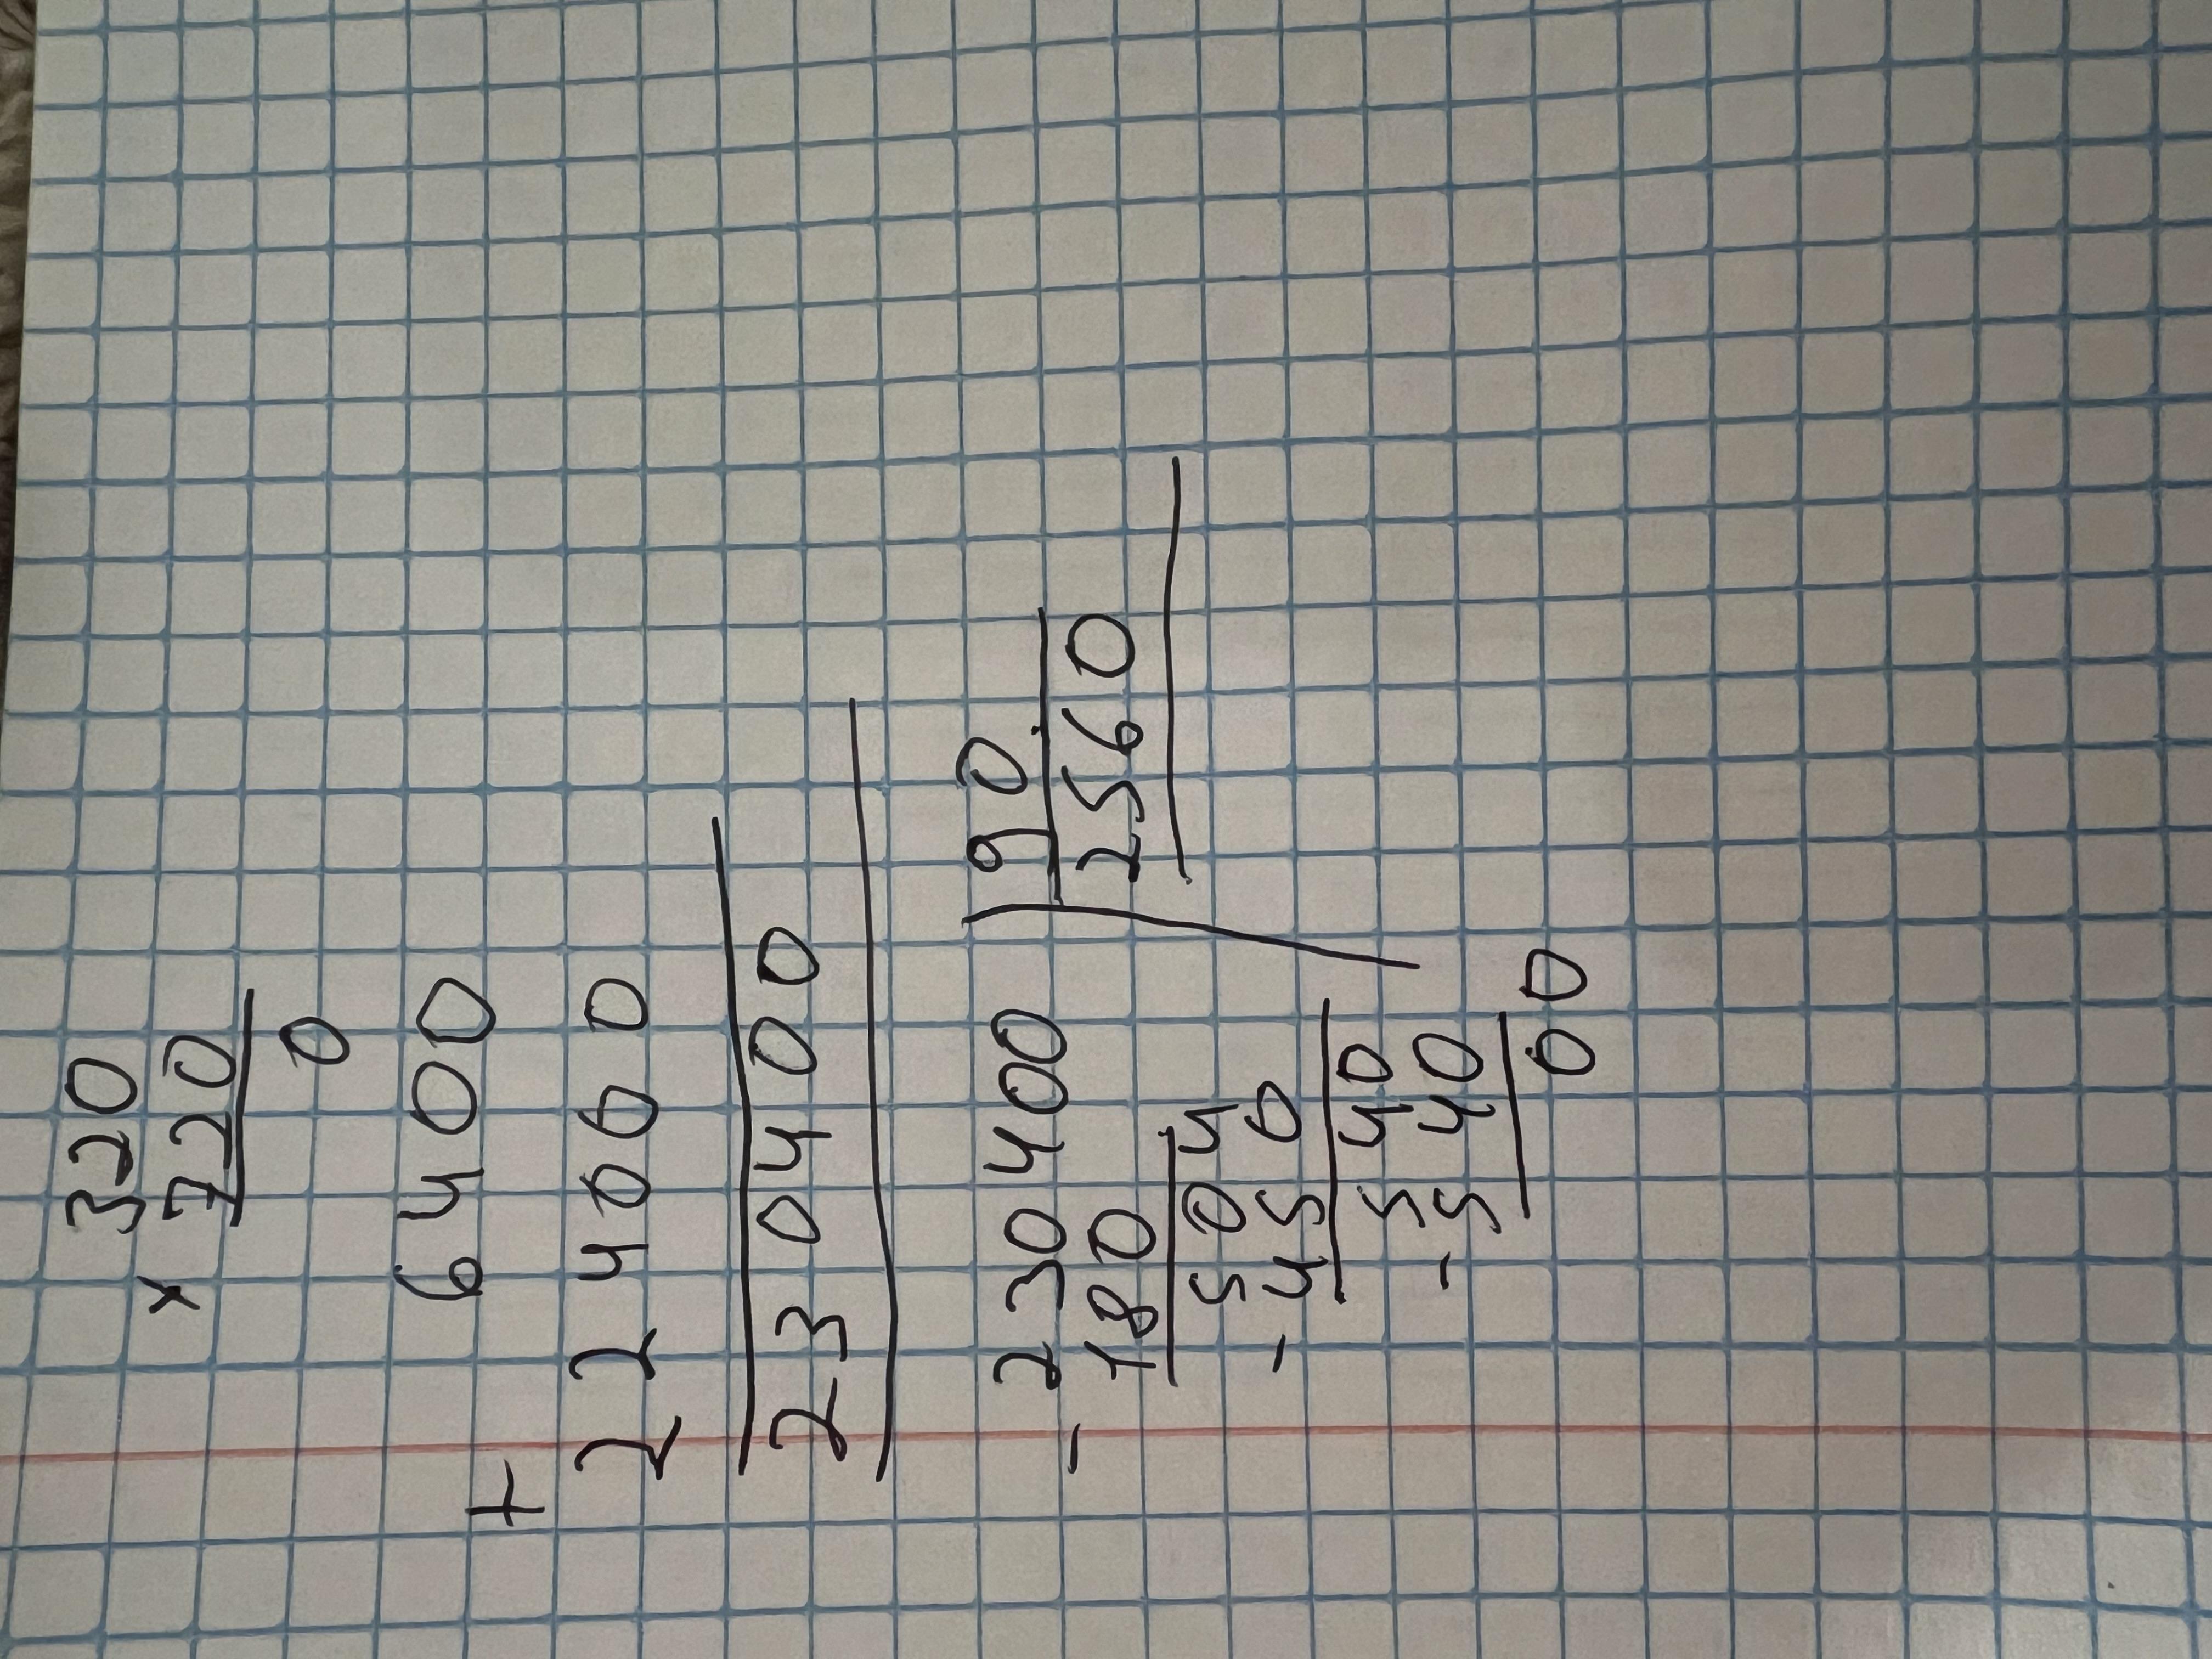 320
× 720
0
6400
+
224000
230400
- 230400 | 90
180 | 2560
504
- 450
540
- 540
00